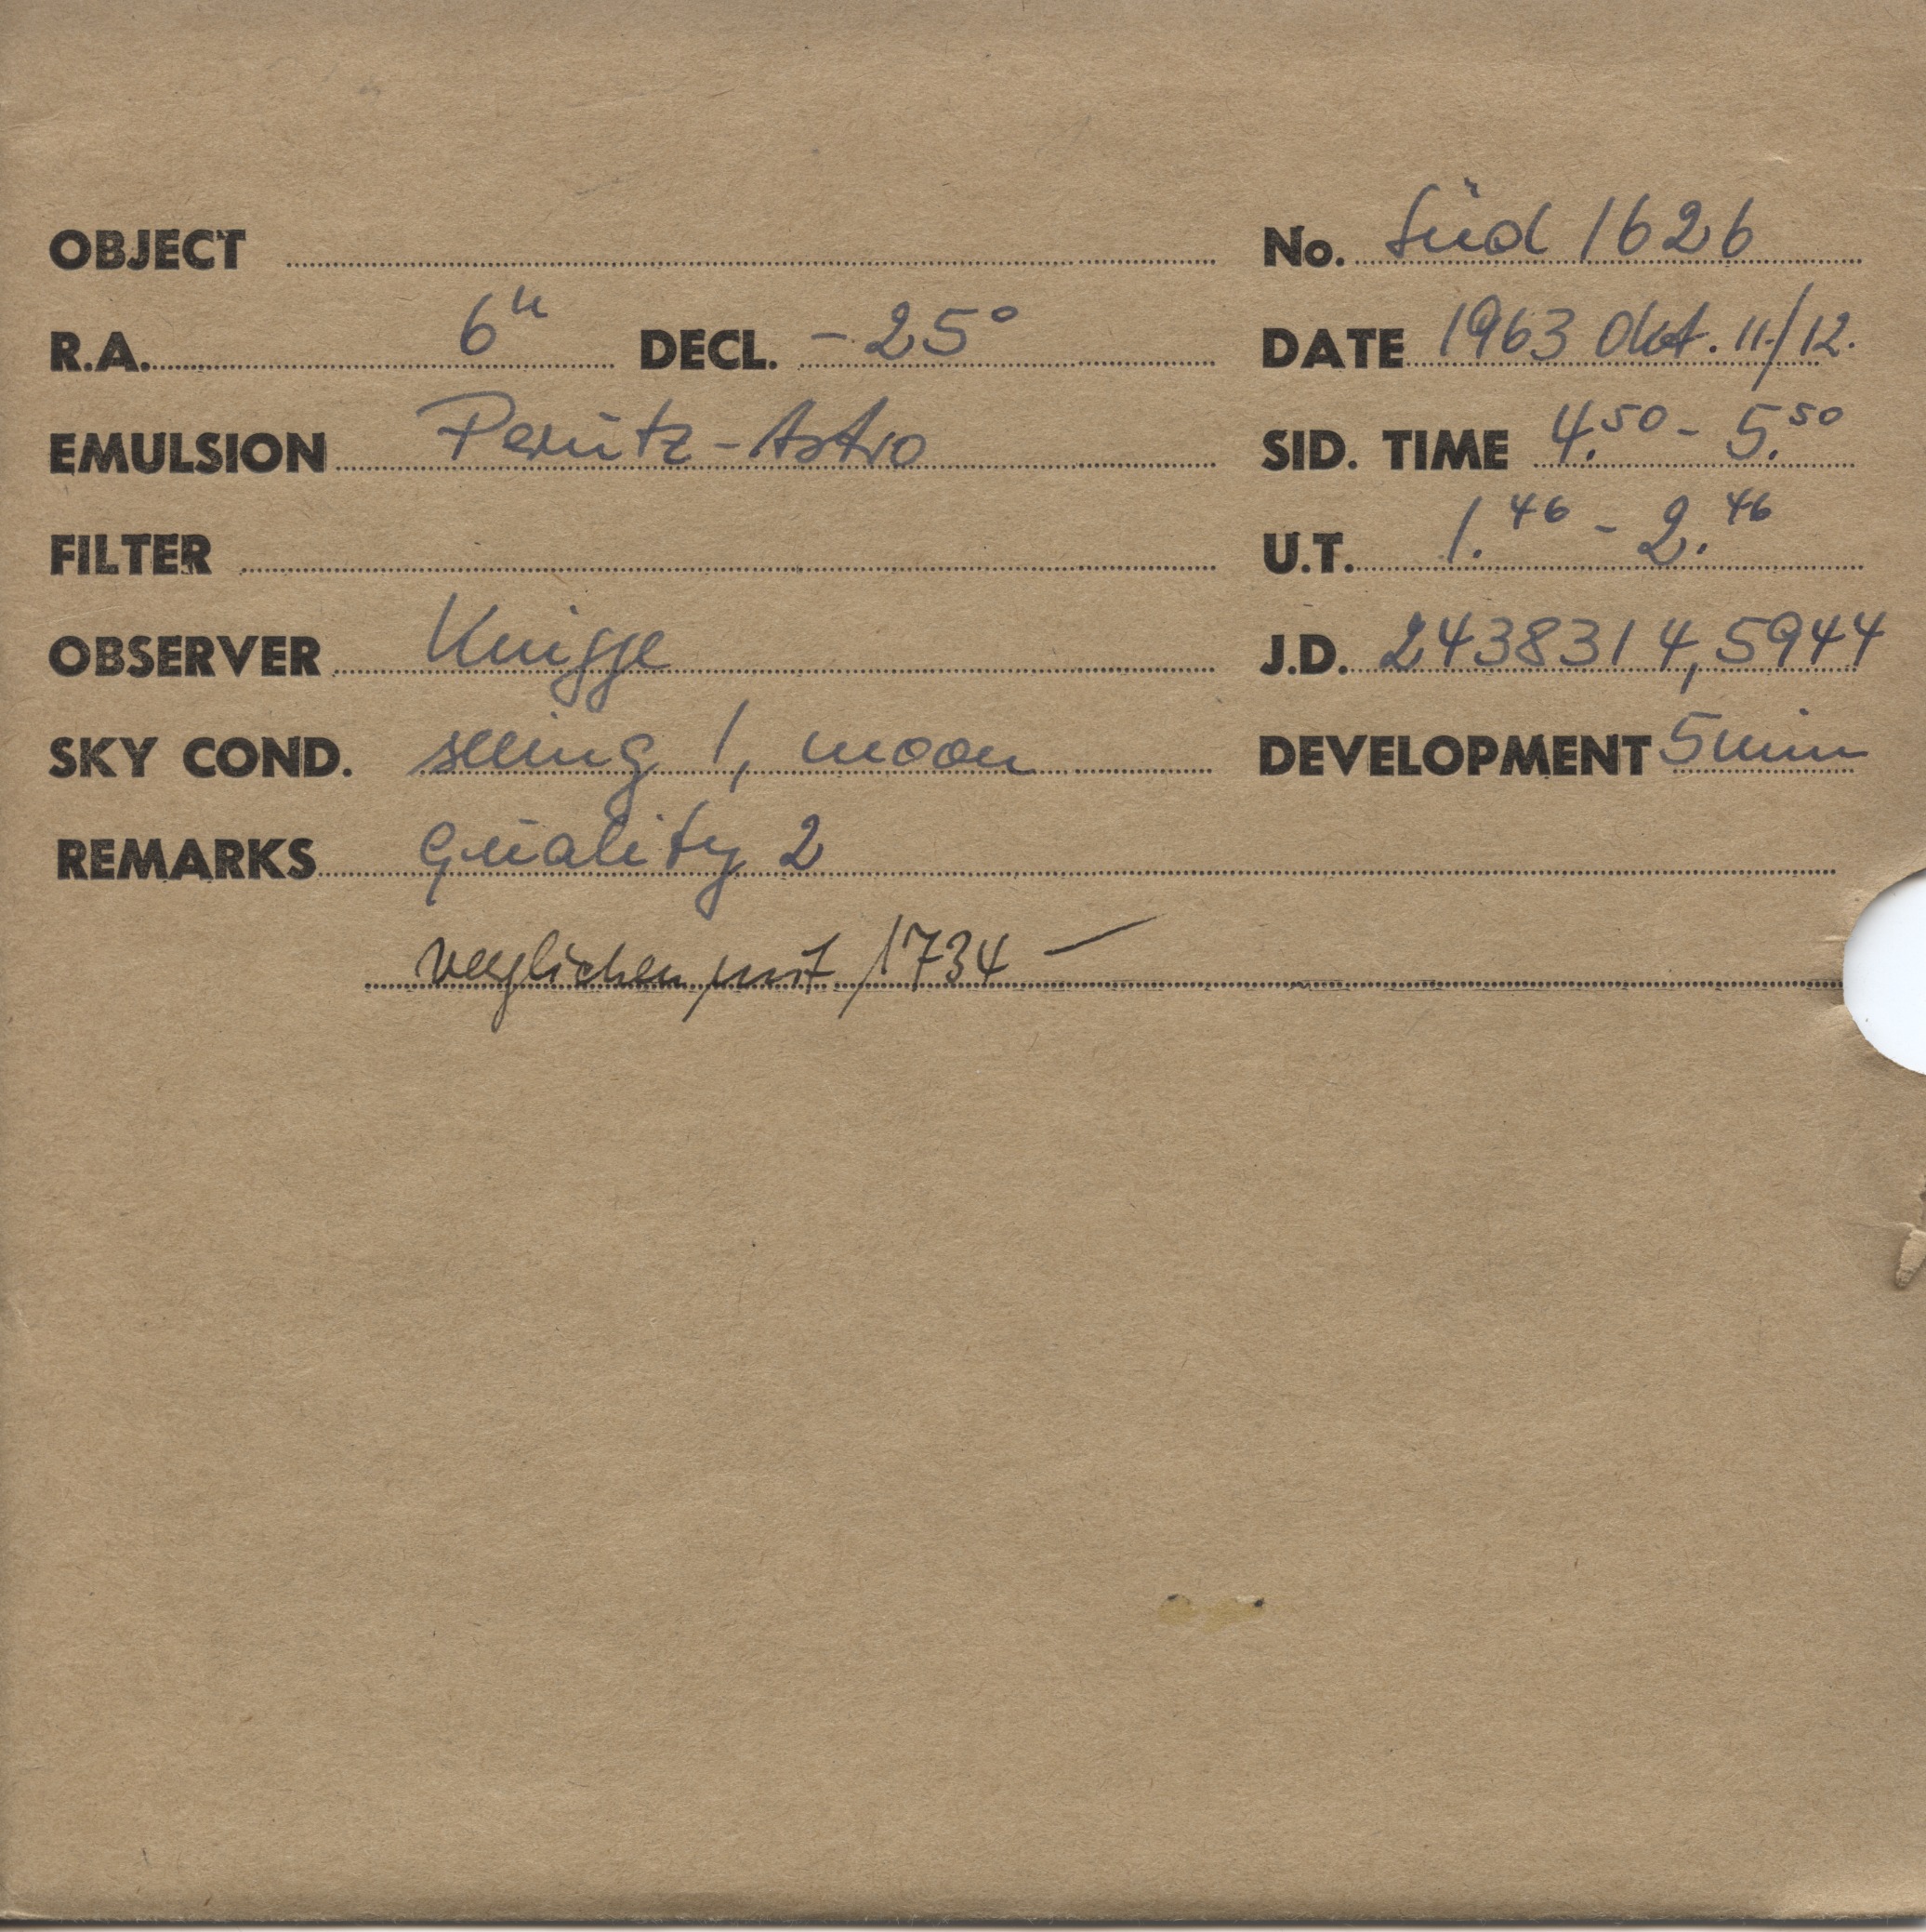 OBJECT No. Süd 1626
R.A. 6h DECL. -25° DATE 1963 Okt. 11./12.
EMULSION Perutz-Astro SID. TIME 4.50 - 5.50
FILTER U.T. 1.46 - 2.46
OBSERVER Knigge J.D. 2438314,5944
SKY COND. seeing 1, moon DEVELOPMENT 5 min
REMARKS Quality 2
verglichen mit 1734 —